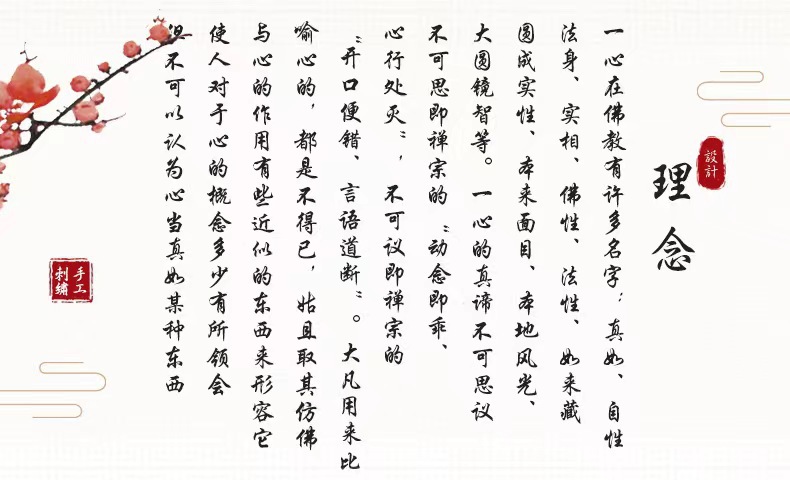 設計
理念
一心在佛教有许多名字：真如、自性
法身、实相、佛性、法性、如来藏
圆成实性、本来面目、本地风光、
大圆镜智等。一心的真谛不可思议
不可思即禅宗的“动念即乖、
心行处灭”，不可议即禅宗的
“开口便错、言语道断”。大凡用来比
喻心的，都是不得已，姑且取其仿佛
与心的作用有些近似的东西来形容它
使人对于心的概念多少有所领会
但不可以认为心当真如某种东西
手工
刺绣